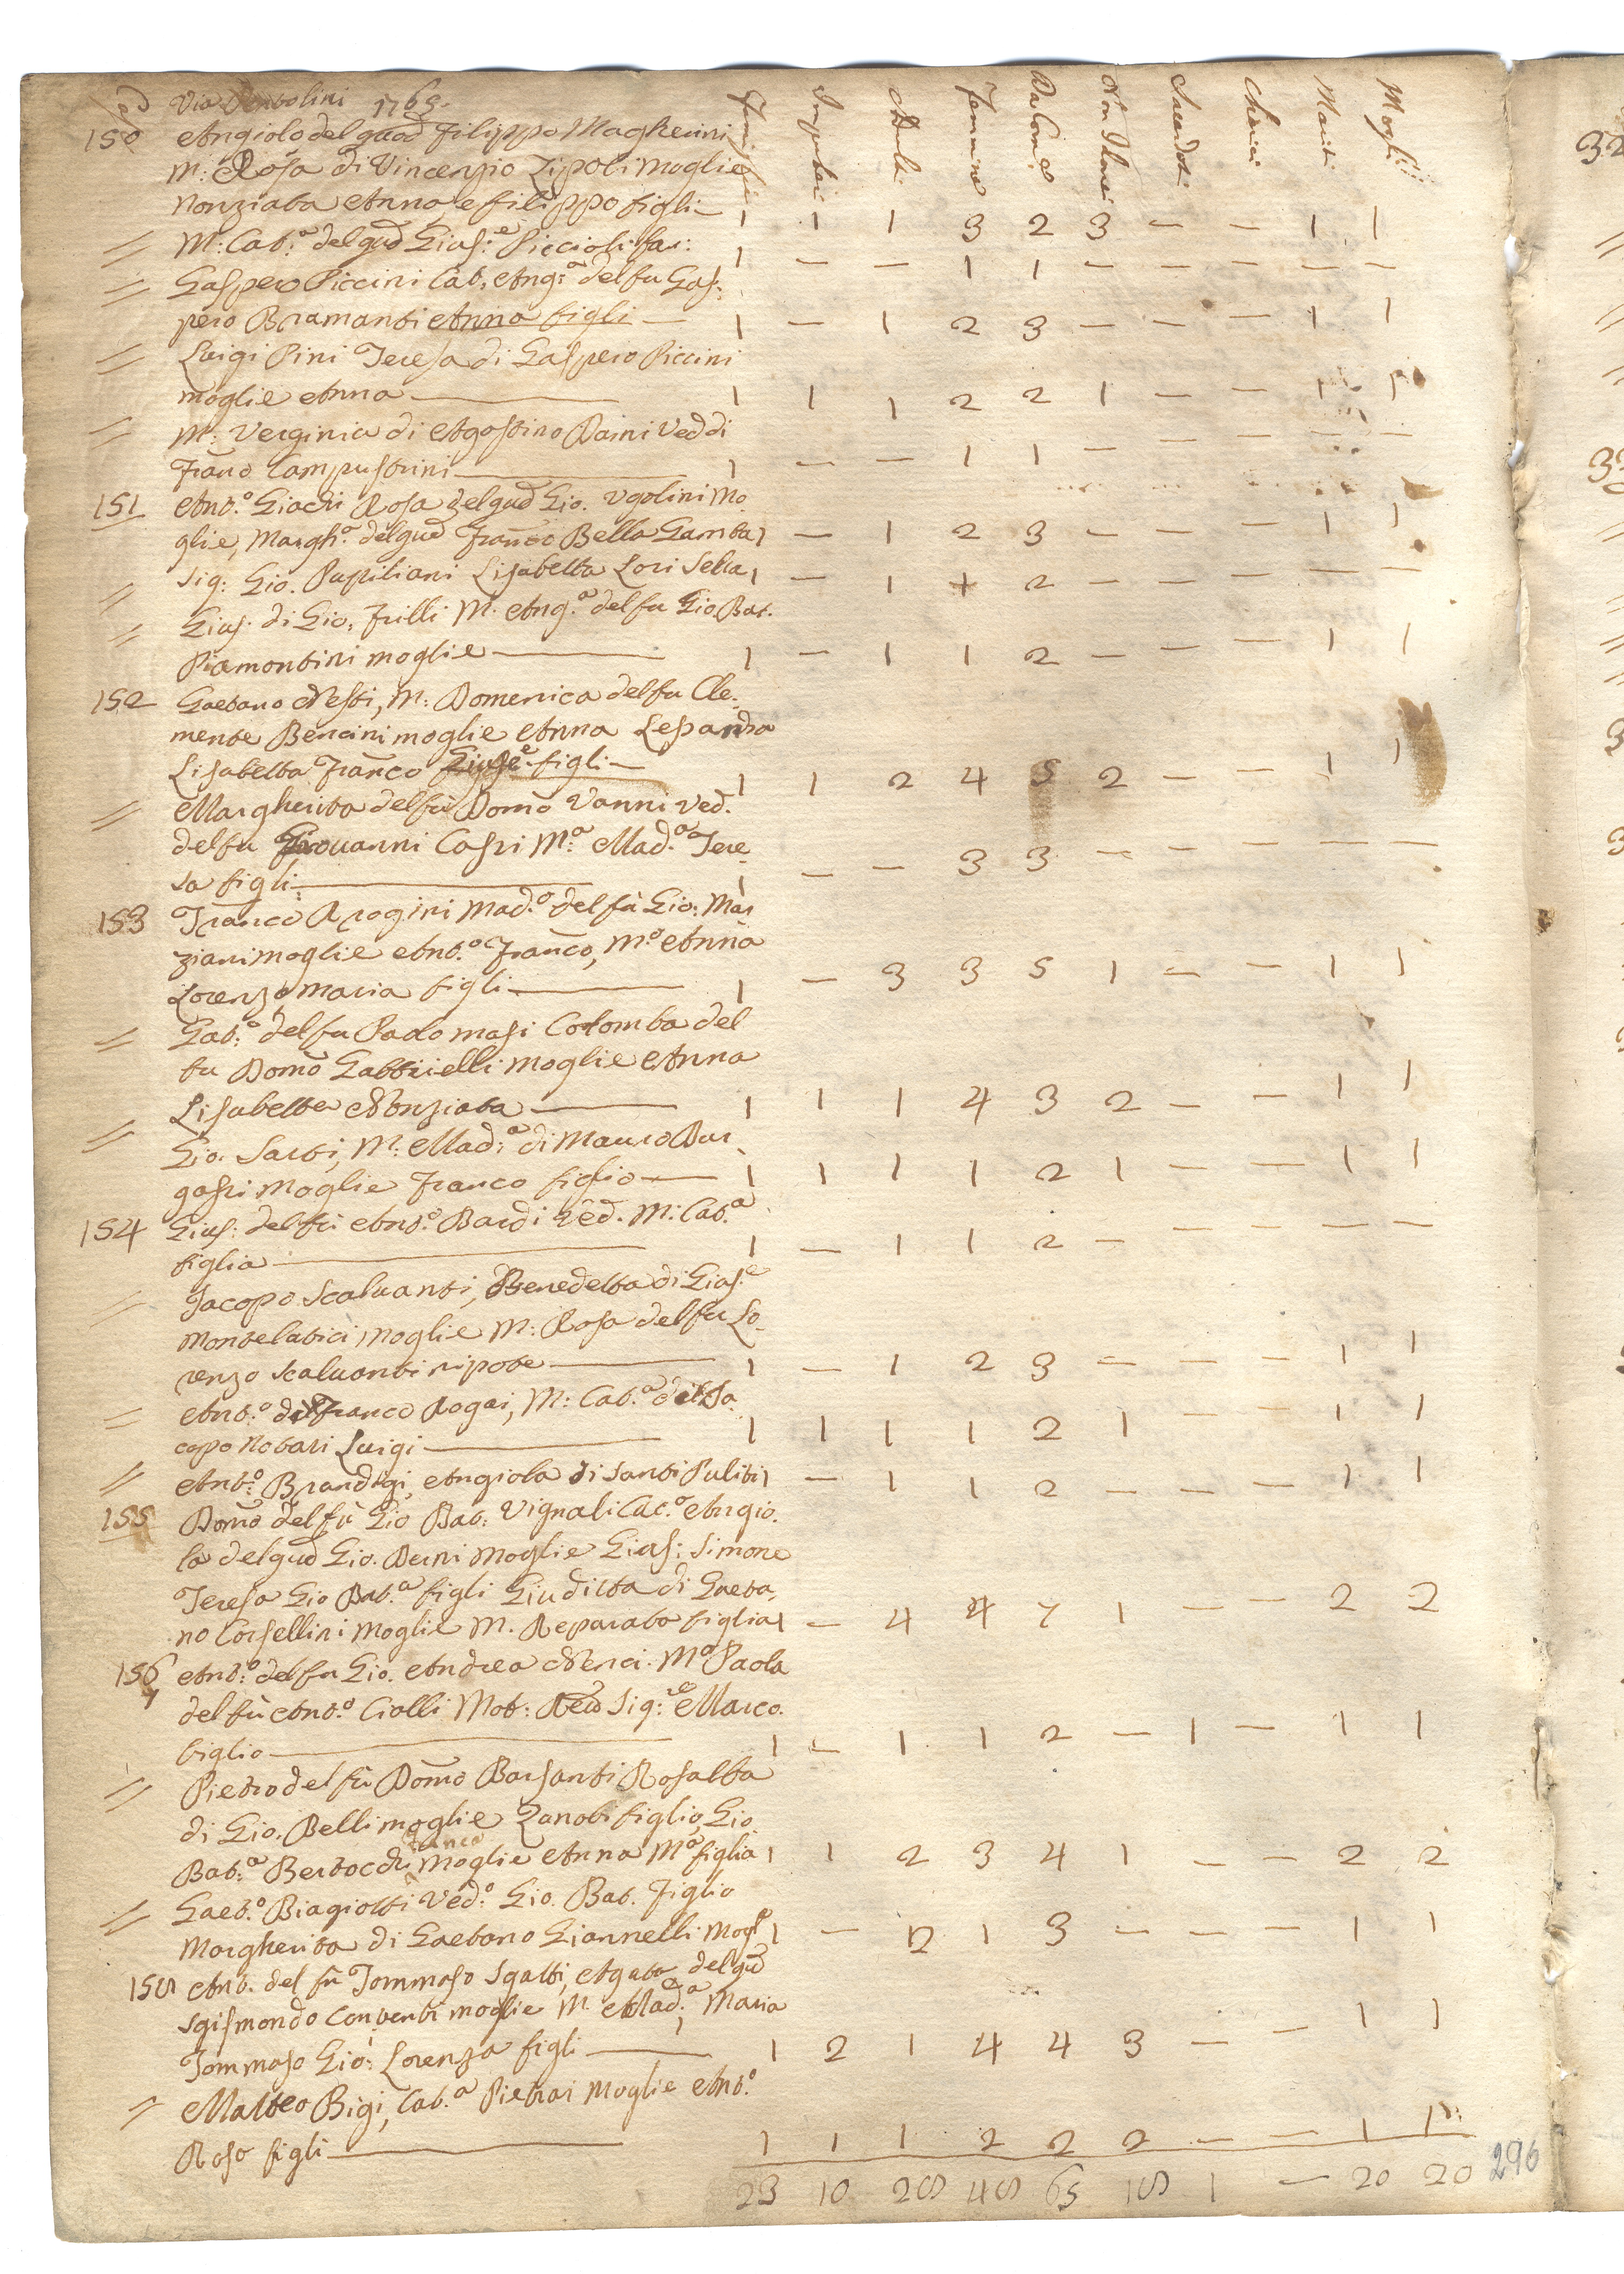 Via 1765.
Famiglie Impuberi Adulti Femmine Da Com:e Non Idonei Sacerdoti Cherici Mariti Mogli
150 Angiolo del quod Filippo Magherini
M: Rosa di Vincenzio Zipoli moglie
Nonziata Anna, e filippo figli — 1 1 1 3 2 3 — — 1 1
// M: Cat:a del qud Gius:e Piccioli 1 — — 1 1 — — — — —
// Gaspero Piccini Cat. Ang:a del fu Gas-
pero Bramanti Anna figli — 1 — 1 2 3 — — — 1 1
// Luigi Pini Teresa di Gaspero Piccini
moglie Anna — 1 1 1 2 2 1 — — 1 1
// M: Verginia di Agostino Daini Ved di
Franco Campustrini — 1 — — 1 1 — — — — —
151 Ant.o Giachi Rosa del qud Gio. Ugolini Mo-
glie, Margh.a del qud Franco Bella Gamba 1 — 1 2 3 — — — 1 1
// Sig: Gio. Pupiliani Lisabetta Lori Sella 1 — 1 + 2 — — — — —
// Gius. di Gio. Frilli M. Ang.a del fu Gio. Bat.
Piamontini moglie — 1 — 1 1 2 — — — 1 1
152 Gaetano Nesti, M: Domenica del fu Cle-
mente Bencini moglie Anna Lesandra
Lisabetta Franco Gius.e figli — 1 1 2 4 5 2 — — 1 1
// Margherita del fu Domo Vanni Ved.
del fu Giovanni Casri M:a Mad.a Tere-
sa figli — 1 — — 3 3 — — — — —
153 Franco Arogini Mad.a del fu Gio: Mar
ziani moglie Ant.o Franco, M.a Anna
Lorenzo Maria figli — 1 — 3 3 5 1 — — 1 1
// Gab:o del fu Paolo Masi Colomba del
fu Domo Gabbrielli moglie Anna
Lisabetta Nonziata — 1 1 1 4 3 2 — — 1 1
// Gio. Sarti, M: Mad:a di Mauro Bur
gassi moglie Franco figlio — 1 1 1 1 2 1 — — 1 1
154 Gius: del fu Ant.o Bardi Ved. M: Cat.a
figlia — 1 — 1 1 2 — — — — —
// Jacopo Scaluanti, Benedetta di Gius.e
Montelatici moglie M: Rosa del fu Lo-
renzo Scaluanti nipote — 1 — 1 2 3 — — — 1 1
// Ant.o di Franco Rogai, M: Cat.a di Ja-
copo Notari Luigi — 1 1 1 1 2 1 — — 1 1
// Ant:o Brandigi, Angiola di Santi Puliti 1 — 1 1 2 — — — 1 1
155 Domo del fu Gio Bat: Vignali Cat.a Angio-
la del qud Gio. Berni Moglie Gius: Simone
Teresa Gio Bat.a figli Giuditta di Gaeta-
no Corsellini moglie M. Reparata figlia 1 — 4 4 7 1 — — 2 2
156 Ant.o del fu Gio. Andrea Nenci. M.a Paola
del fu Ant.o Ciolli Mot: Red Sig:re Marco.
figlio — 1 — 1 1 2 — 1 — 1 1
// Pietro del fu Domo Barsanti Rosalba
di Gio. Belli moglie Zanobi figlio, Gio
Bat.a Bertocchi moglie Anna M.a figlia 1 1 2 3 4 1 — — 2 2
// Gaet.o Biagiotti Ved.o Gio. Bat. figlio
Margherita di Gaetano Giannelli Mogl.e 1 — 2 1 3 — — — 1 1
158 Ant. del fu Tommaso Sgatti, Agata del qud
Sgismondo Conventi moglie M. Mad:a, Maria
Tommaso Gio: Lorenza figli — 1 2 1 4 4 3 — — 1 1
// Matteo Bigi, Cat.a Pietrai Moglie Ant.o
Rosa figli — 1 1 1 2 2 2 — — 1 1
23 10 28 48 65 18 1 — 20 20
296